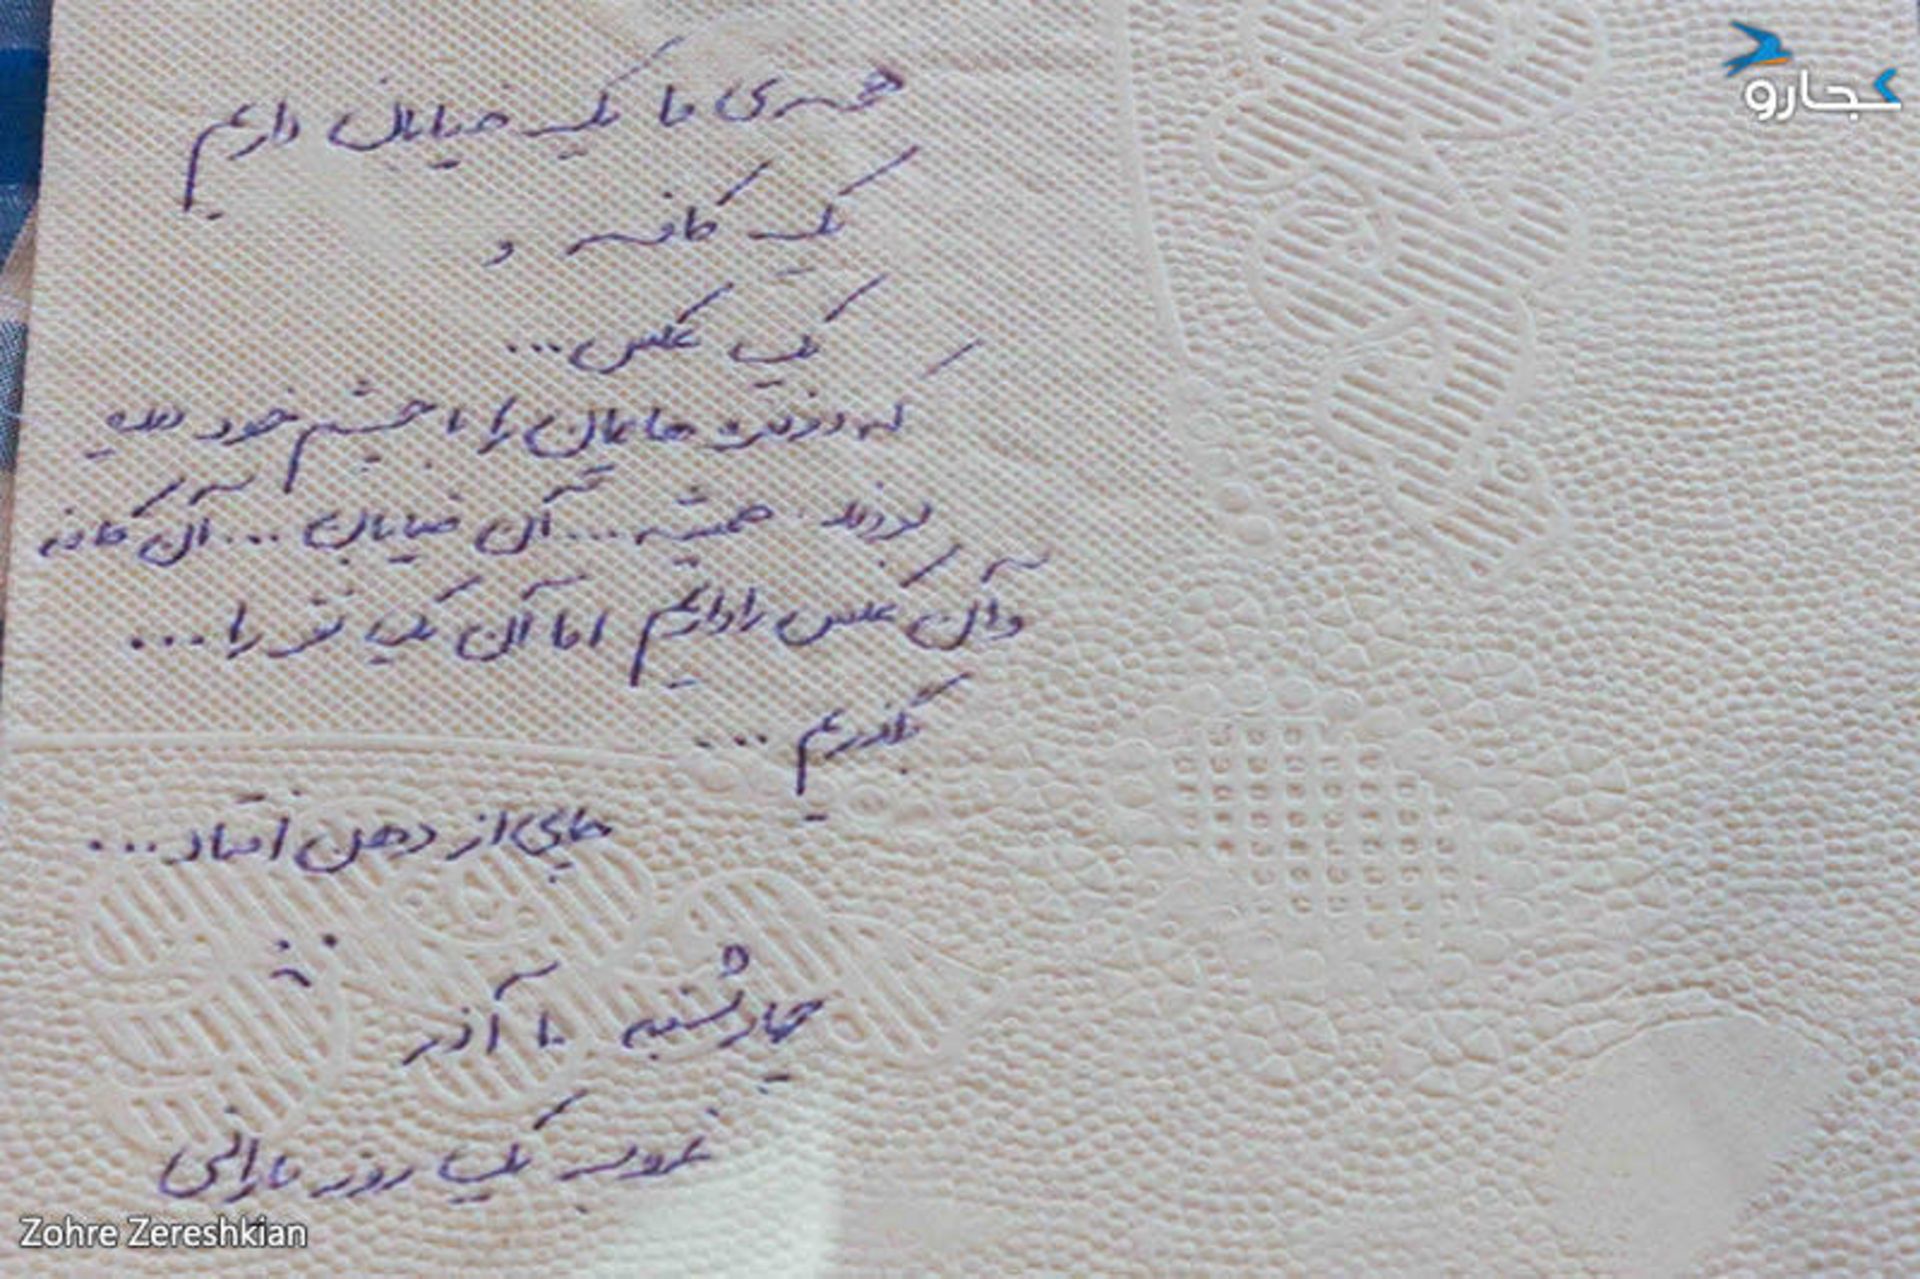 کجارو
همه‌ی ما یک خیابان داریم
یک کافه و
یک عکس...
که دونفره هایمان را با چشم خود دیده
بودند. همیشه... آن خیابان... آن کافه
و آن عکس را داریم اما آن یک نفر را...
بگذریم...
چایی از دهن افتاد...
چهارشنبه ۱۰ آذر
غروب یک روز بارانی
Zohre Zereshkian